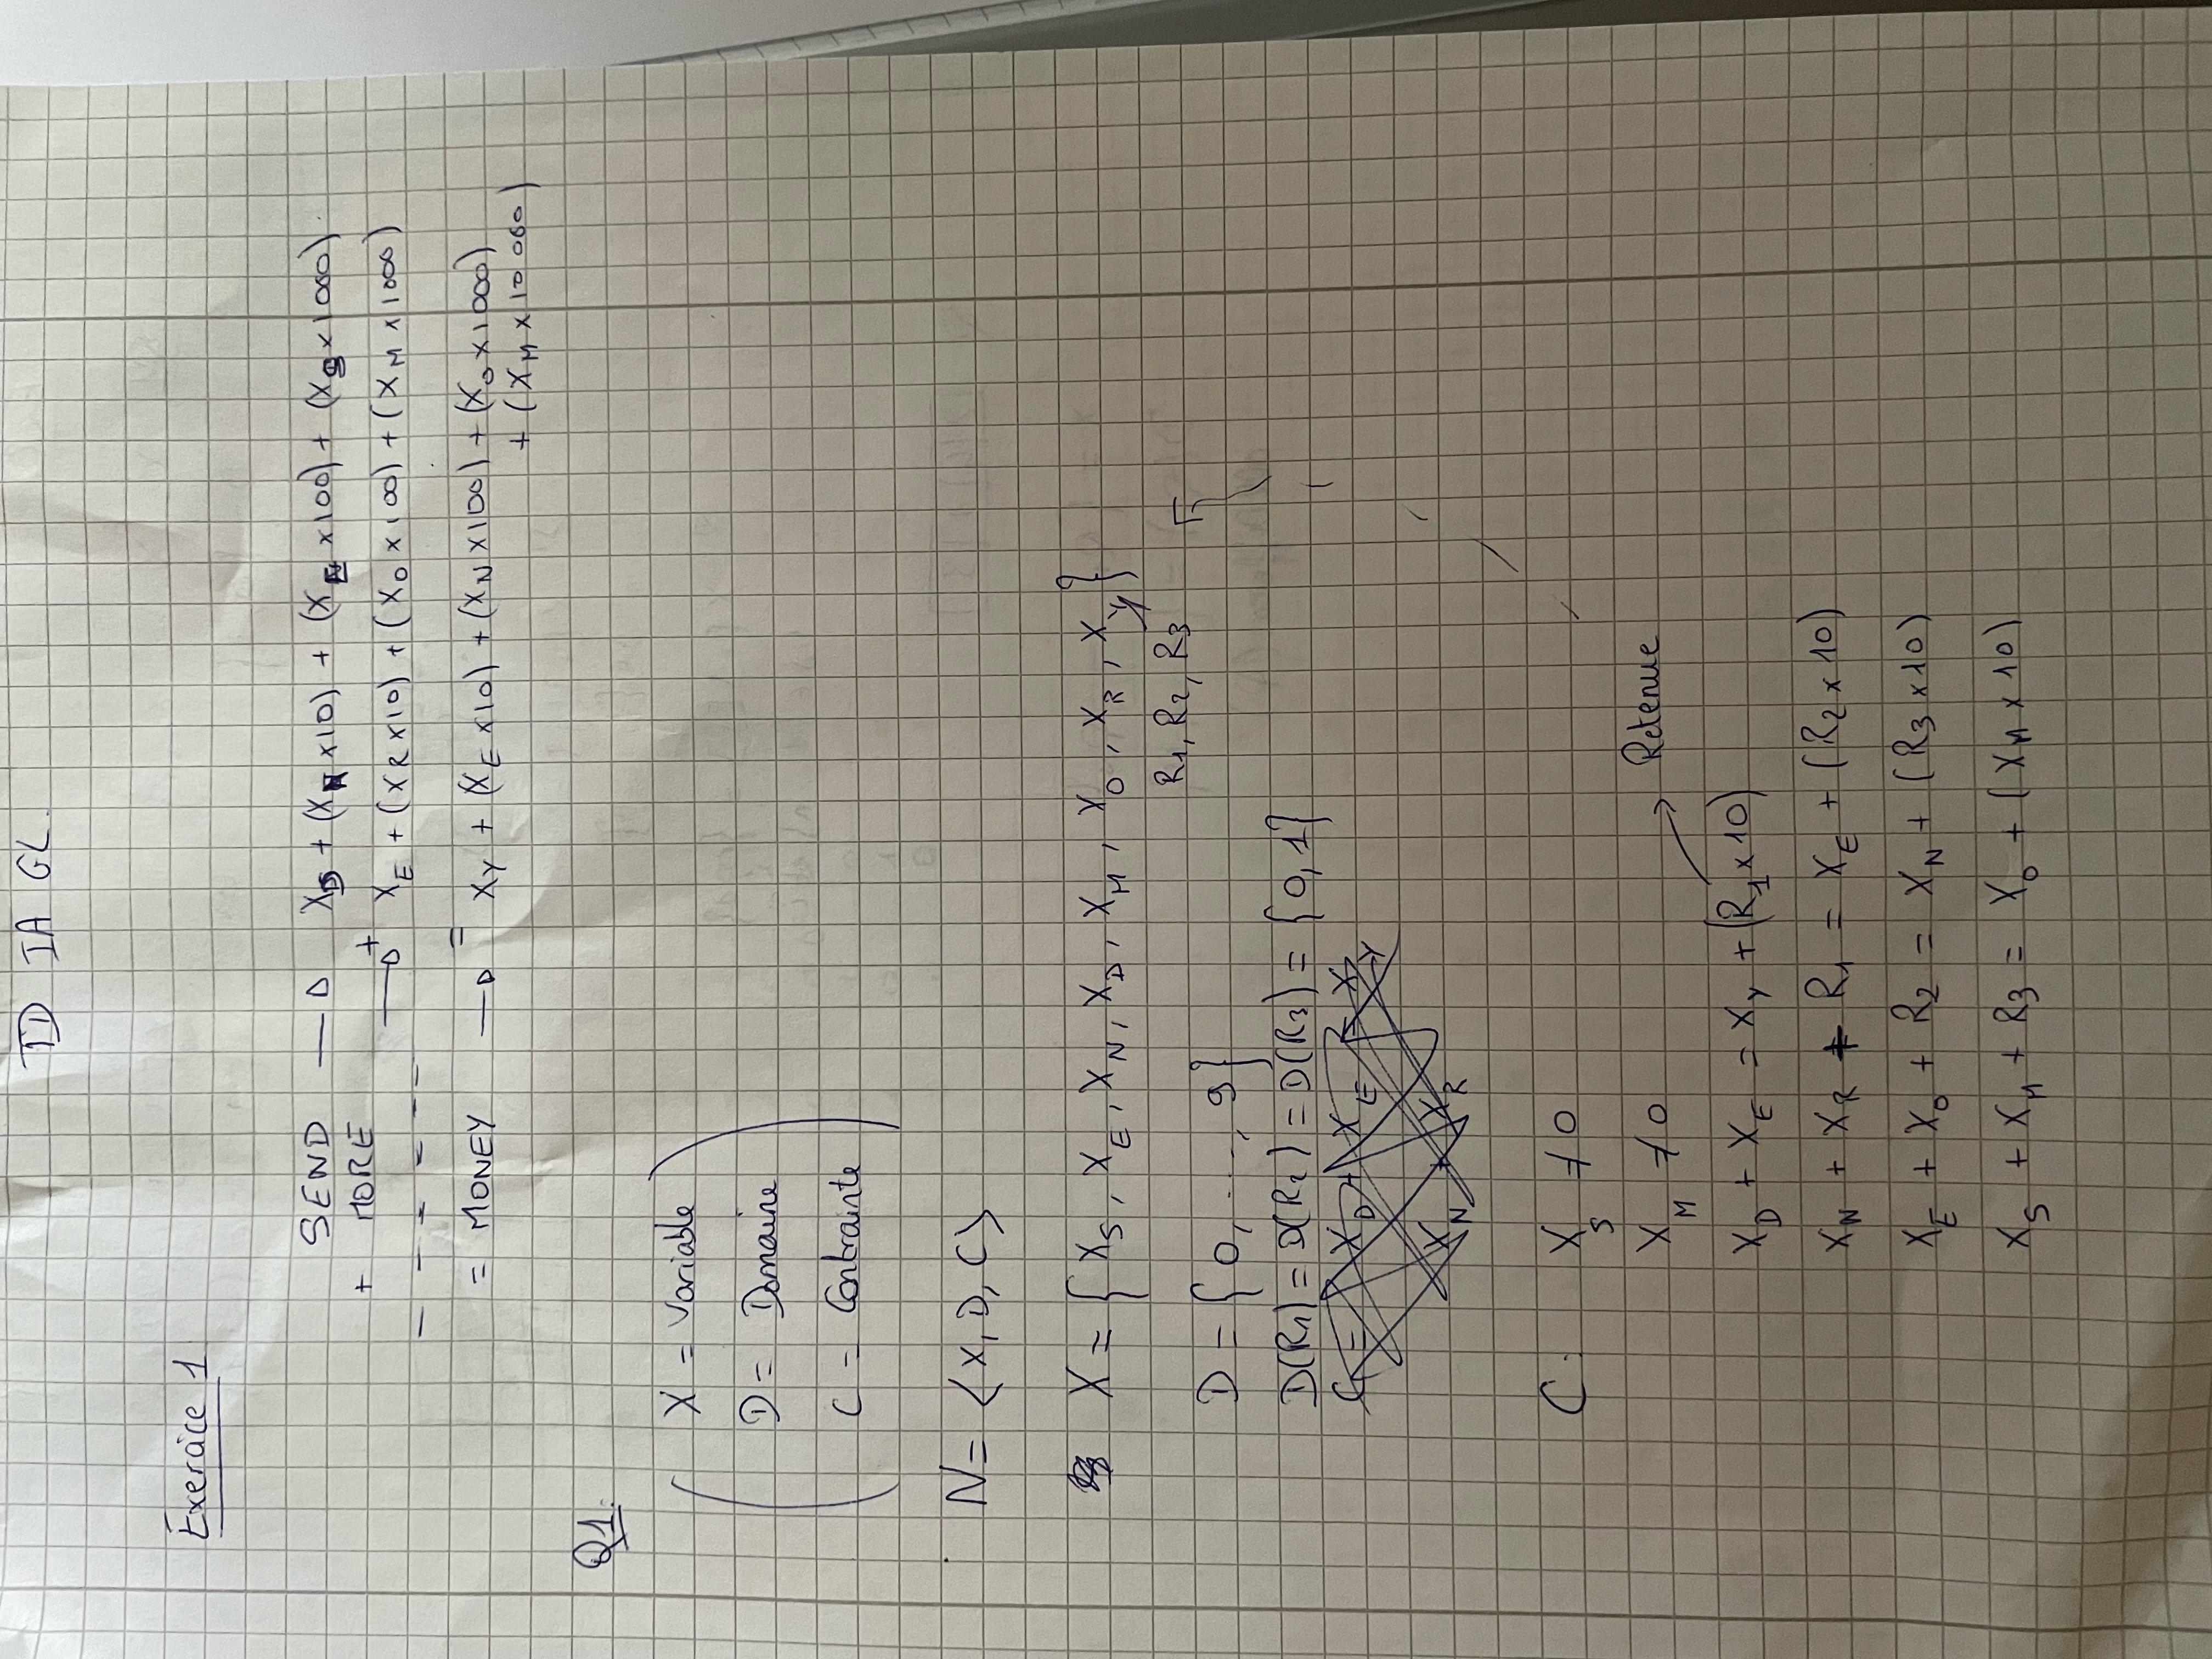 TD IA GL.
Exercice 1
SEND —D XD + (XN x10) + (XE x100) + (XS x1000)
+ MORE —D + XE + (XR x10) + (XO x100) + (XM x1000)
= MONEY —D = XY + (XE x10) + (XN x100) + (XO x1000)
+ (XM x10 000)
Q1:
X = Variable
D = Domaine
C = Contrainte
N = <X, D, C>
X = { XS, XE, XN, XD, XM, XO, XR, XY }
R1, R2, R3
D = { 0, ...., 9 }
D(R1) = D(R2) = D(R3) = {0, 1}
C: XS ≠ 0
XM ≠ 0
Retenue
XD + XE = XY + (R1 x 10)
XN + XR + R1 = XE + (R2 x 10)
XE + XO + R2 = XN + (R3 x 10)
XS + XM + R3 = XO + (XM x 10)